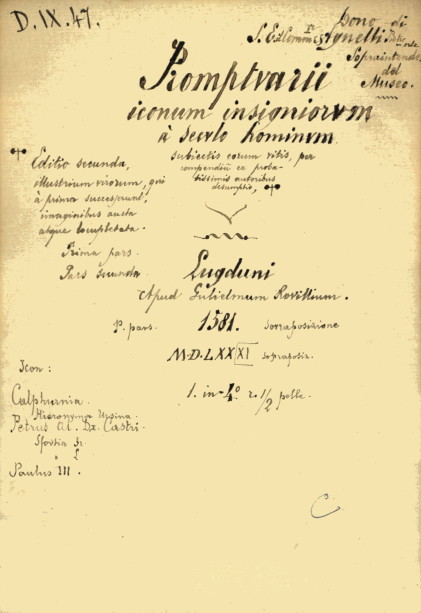 D.IX.47.
Dono di
S. E. il Comm. Agnelli
Sopraintende.
del
Museo.
Promptvarii
iconum insigniorvm
à secvlo hominvm
subiectis eorum vitis, per
compendiũ ex proba-
tissimis autoribus
desumptis,
Editio secunda,
illustrium virorum, qui
à prima successerunt,
imaginibus aucta
atque locupletata.
Prima pars.
Pars secunda
Lugduni
Apud Gulielmum Rovillium.
P. pars. 1581. sovraposizione
M·D·LXXXI sopraposiz.
1. in-4.º r. 1/2 pelle.
Icon:
Calphurnia.
Hieronyma Ursina.
Petrus Al. Dx. Castri.
Sfortia Ir.
" L
Paulus III.
C